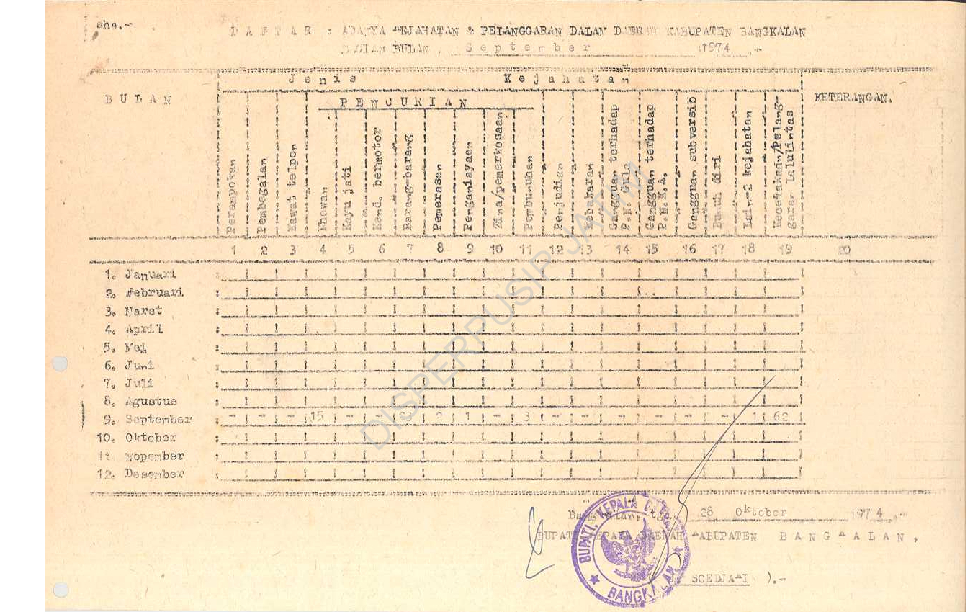 D A F T A R : ADANYA KEJAHATAN & PELANGGARAN DALAM DAERAH KABUPATEN BANGKALAN
BULAN, September 1974.-
J e n i s K e j a h a t a n
B U L A N
P E N C U R I A N
KETERANGAN.
Perampokan
Pembegalan
Kawat telpon
Khewan
Kayu jati
Kend. bermotor
Barang-barang
Pemerasan
Penganiayaan
Zina/pemerkosaan
Pembunuhan
Perjudian
Kebakaran
Gangguan terhadap P.N. Gula
Gangguan terhadap P.N.K.A.
Gangguan subversib
Bunuh diri
Lain-2 kejahatan
Kecelakaan/Pelanggaran lalulintas
1 2 3 4 5 6 7 8 9 10 11 12 13 14 15 16 17 18 19 20
1. Januari
2. Februari
3. Maret
4. April
5. Mei
6. Juni
7. Juli
8. Agustus
9. September : - - - 15 - - 2 1 - 3 - - - - - - 1 62
10. Oktober
11. Nopember
12. Desember
28 Oktober 1974.-
BUPATI KEPALA DAERAH KABUPATEN BANGKALAN,
BUPATI KEPALA DAERAH
BANGKALAN
DISPERPUSIP JATIM